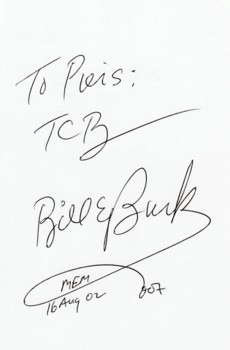 To Piers:
TCB
Bill E Burk
MEM
16 Aug 02 007